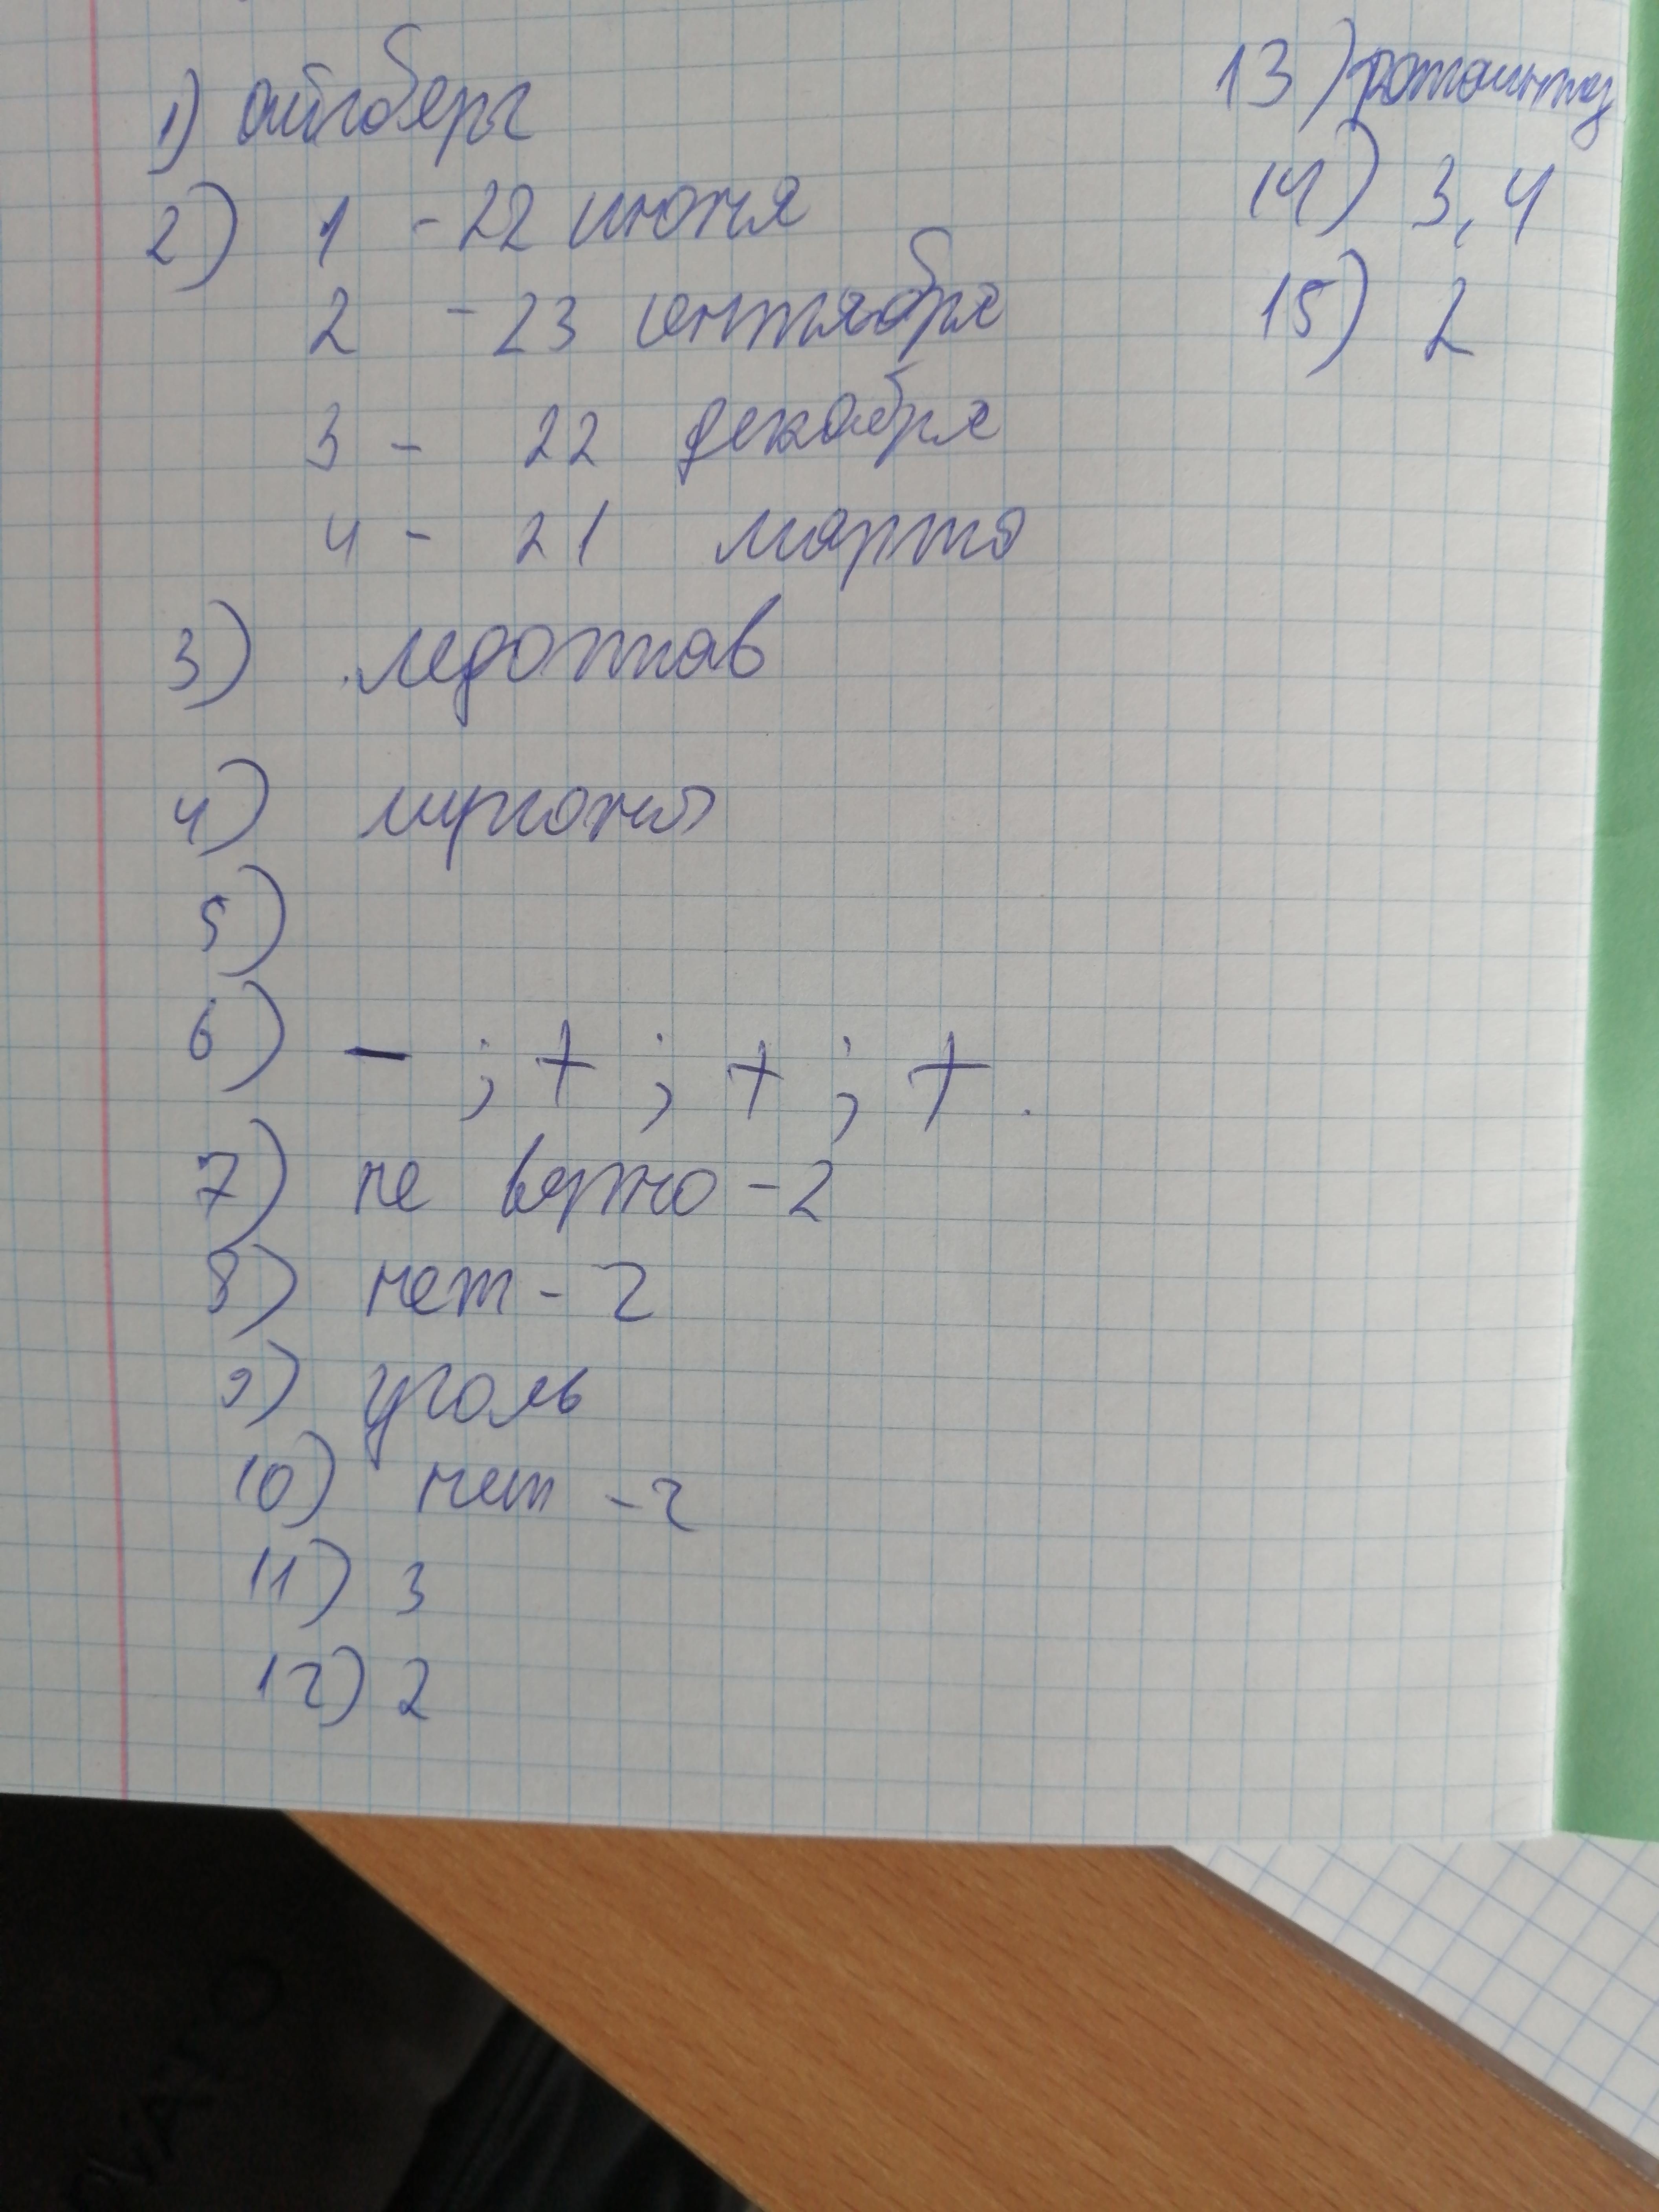 1) айсберг
2) 1 - 22 июня
2 - 23 сентября
3 - 22 декабря
4 - 21 марта
3) ледостав
4)
5)
6) – ; + ; + ; + .
7) не верно - 2
8) нет - 2
9) уголь
10) нет - 2
11) 3
12) 2
13)
14) 3, 4
15) 2